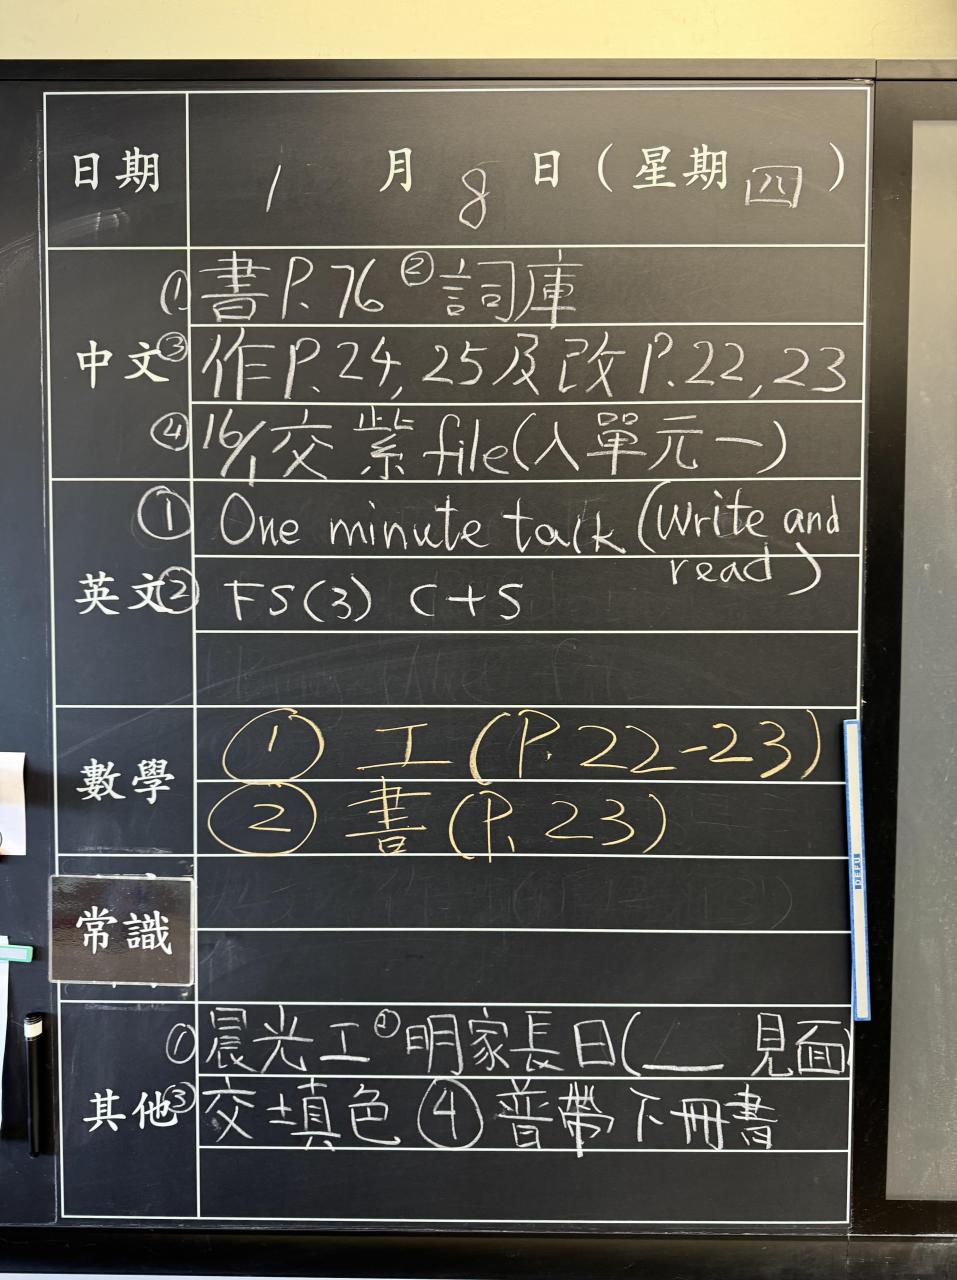 日期 1 月 8 日 (星期 四)
① 書P.76 ② 詞庫
中文 ③ 作P.24, 25及改P.22, 23
④ 16/1交紫file(入單元一)
① One minute talk (Write and
read)
英文 ② FS(3) C+S
數學 ① 工(P.22-23)
② 書(P.23)
常識
① 晨光工 ② 明家長日(__ 見面)
其他 ③ 交填色 ④ 普帶下冊書